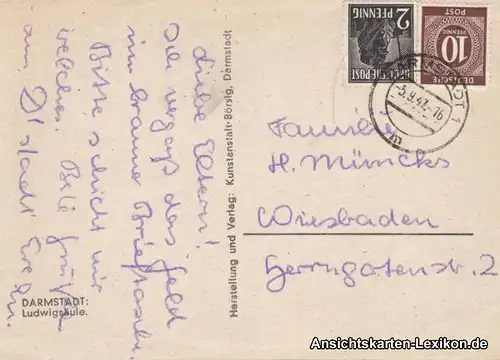 Liebe Eltern!
Ich vergaß das Geld
im braune Brieftasche.
Bitte schickt mir
welches. Bele Grüße
aus D'stadt
DARMSTADT:
Ludwigsäule.
Herstellung und Verlag: Kunstanstalt-Börsig, Darmstadt
2
PFENNIG
DEUTSCHE POST
10
PFENNIG
DEUTSCHE
POST
DARMSTADT 1
-5.9.47.-16
m
Familie
H. Müncks
Wiesbaden
Herrngartenstr. 2
Ansichtskarten-Lexikon.de